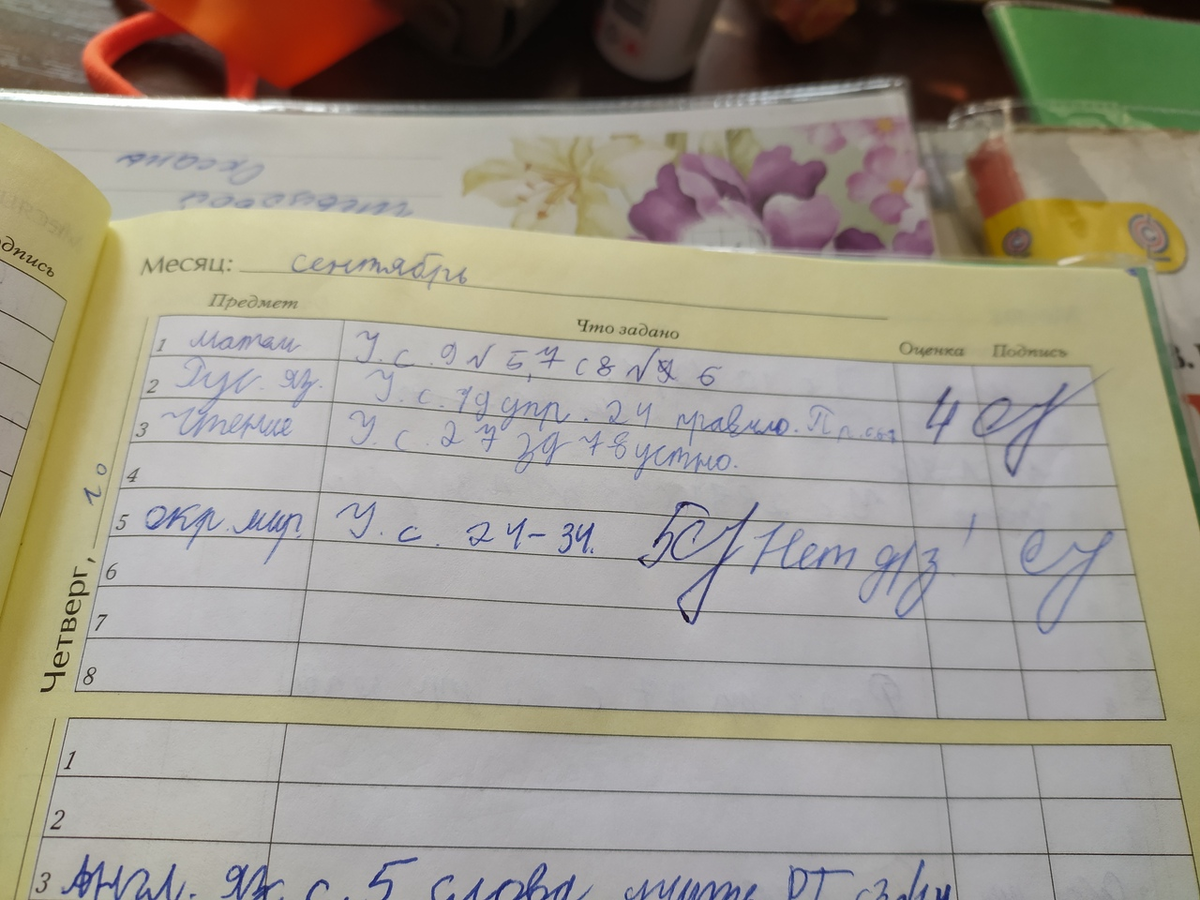 Оксаны
подпись
Месяц: сентябрь
Предмет Что задано Оценка Подпись
1 матем У. с. 9 № 5,7 с 8 № 6
2 Рус. яз. У. с. 19 упр. 24 правило. 4
3 Чтение У. с. 27 зд 7 в устно.
4
5 окр. мир. У. с. 24-34. 5 Нет д/з
6
7
8
Четверг, 10
1
2
3 Англ. яз с. 5 слова РТ